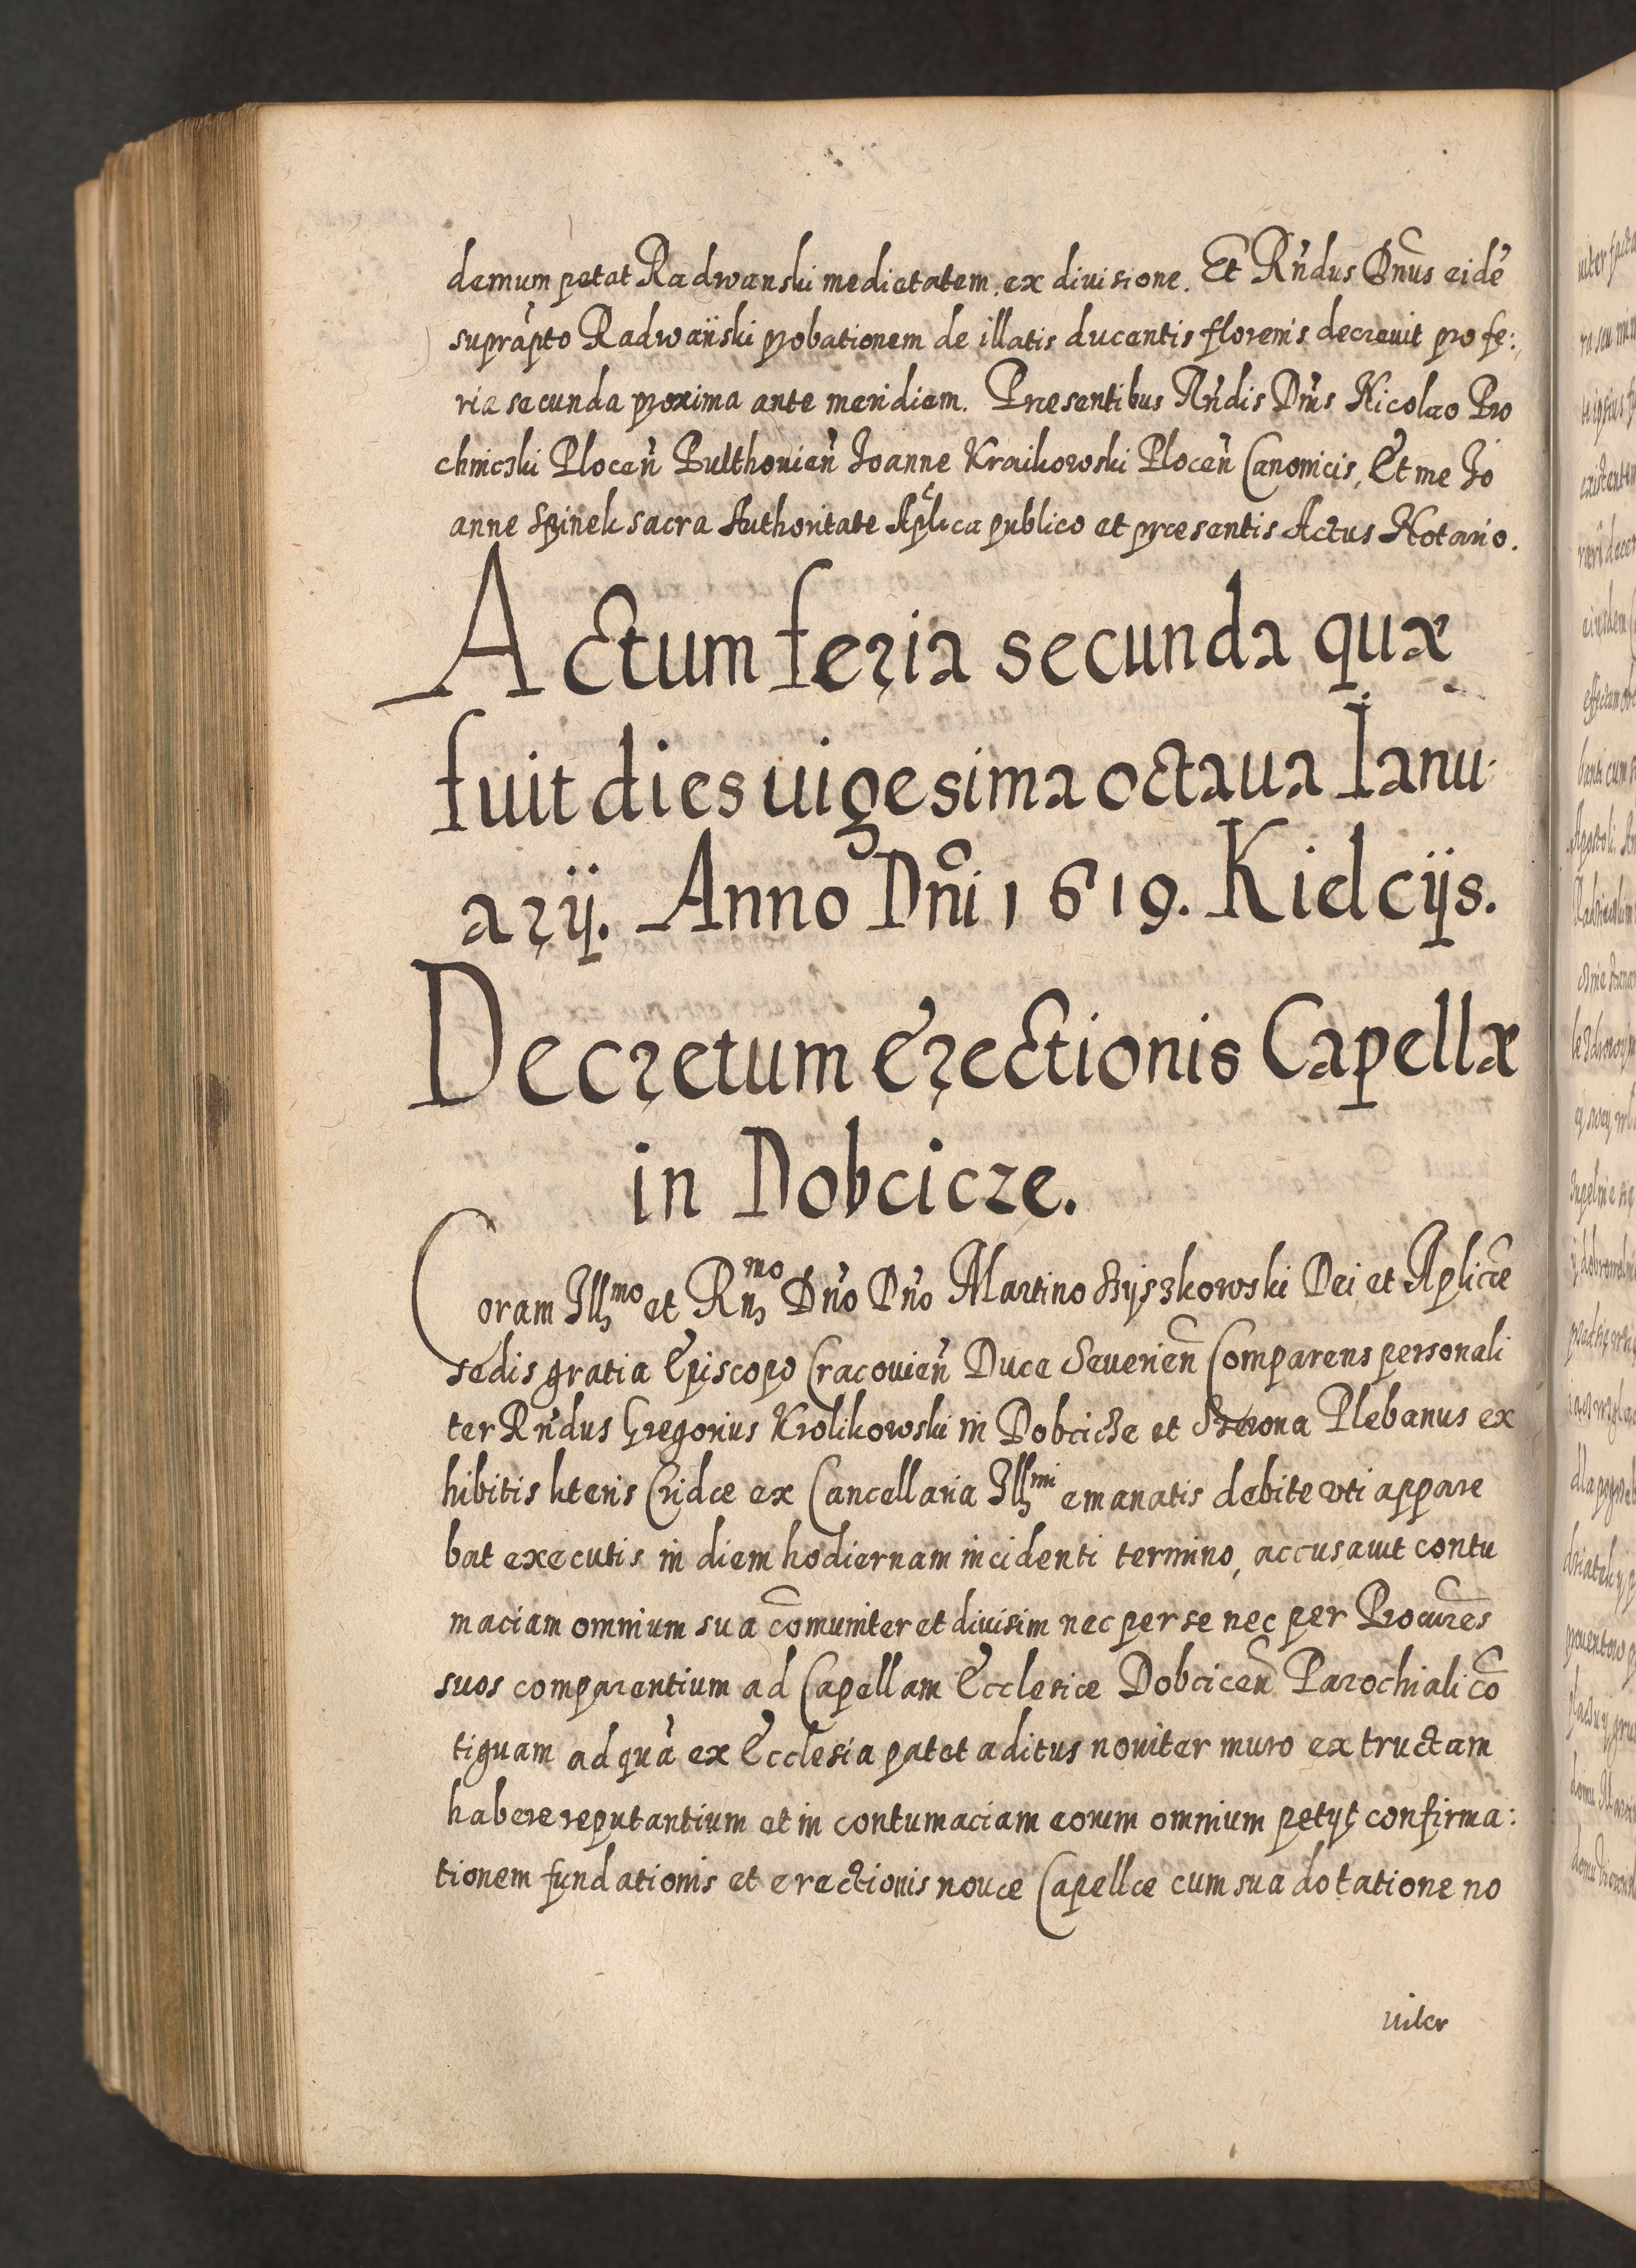 demum petat Radwanski medietatem ex divisione. Et Rńdus Dńus eidē
suprapto Radwański probationem de illatis ducentis florenis decrevit pro fe:
ria secunda proxima ante meridiem. Presentibus Rńdis Dńis Nicolao Pro
chnicski Plocen̄ Pulthovien̄ Joanne Kraikowski Plocen̄ Canonicis, Et me Jo
anne Spinek sacra Authoritate Aplica publico et præsentis Actus Notario.
Actum feria secunda quæ
fuit dies vigesima octaua Ianu
arij. Anno Dñi 1619. Kielcijs.
Decretum Erectionis Capellæ
in Dobcicze.
Coram Illmo et Rnmo Dńo Dńo Martino Szyszkowski Dei et Aplicæ
sedis gratia Episcopo Cracovien̄ Duce Severien̄ Comparens personali
ter Rńdus Gregorius Krolikowski in Dobcicze et Plebanus ex
hibitis literis Cridæ ex Cancellaria Illmi emanatis debite vti appare
bat executis in diem hodiernam incidenti termino, accusavit contu
maciam omnium sua cōmuniter et divisim nec per se nec per Procures
suos comparentium ad Capellam Ecclesiæ Dobcicen̄ Parochiali cō
tiguam ad quā ex Ecclesia patet aditus noviter muro extructam
habere reputantium et in contumaciam eorum omnium petyt confirma:
tionem fundationis et erectionis novæ Capellæ cum sua dotatione no
viter